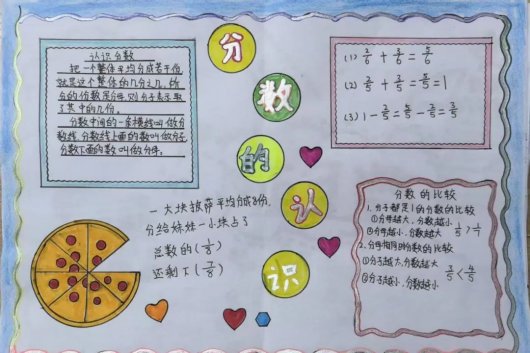 分
数
的
认
识
认识分数
把一个整体平均分成若干份,
就是这个整体的几分之几,所
分的份数是分母,则分子表示取
了其中的几份。
分数中间的一条横线叫做分
数线,分数线上面的数叫做分子,
分数下面的数叫做分母。
(1) 2/6 + 3/6 = 5/6
(2) 2/5 + 3/5 = 5/5 = 1
(3) 1 - 2/5 = 5/5 - 2/5 = 3/5
一大块披萨平均分成8份,
分给妹妹一小块占了
总数的(1/8)
还剩下(7/8)
分数的比较
1. 分子都是1的分数的比较
①分母越大,分数越小
②分母越小,分数越大
1/5 > 1/7
2. 分母相同的分数的比较
①分子越大,分数越大
②分子越小,分数越小
3/5 < 4/5